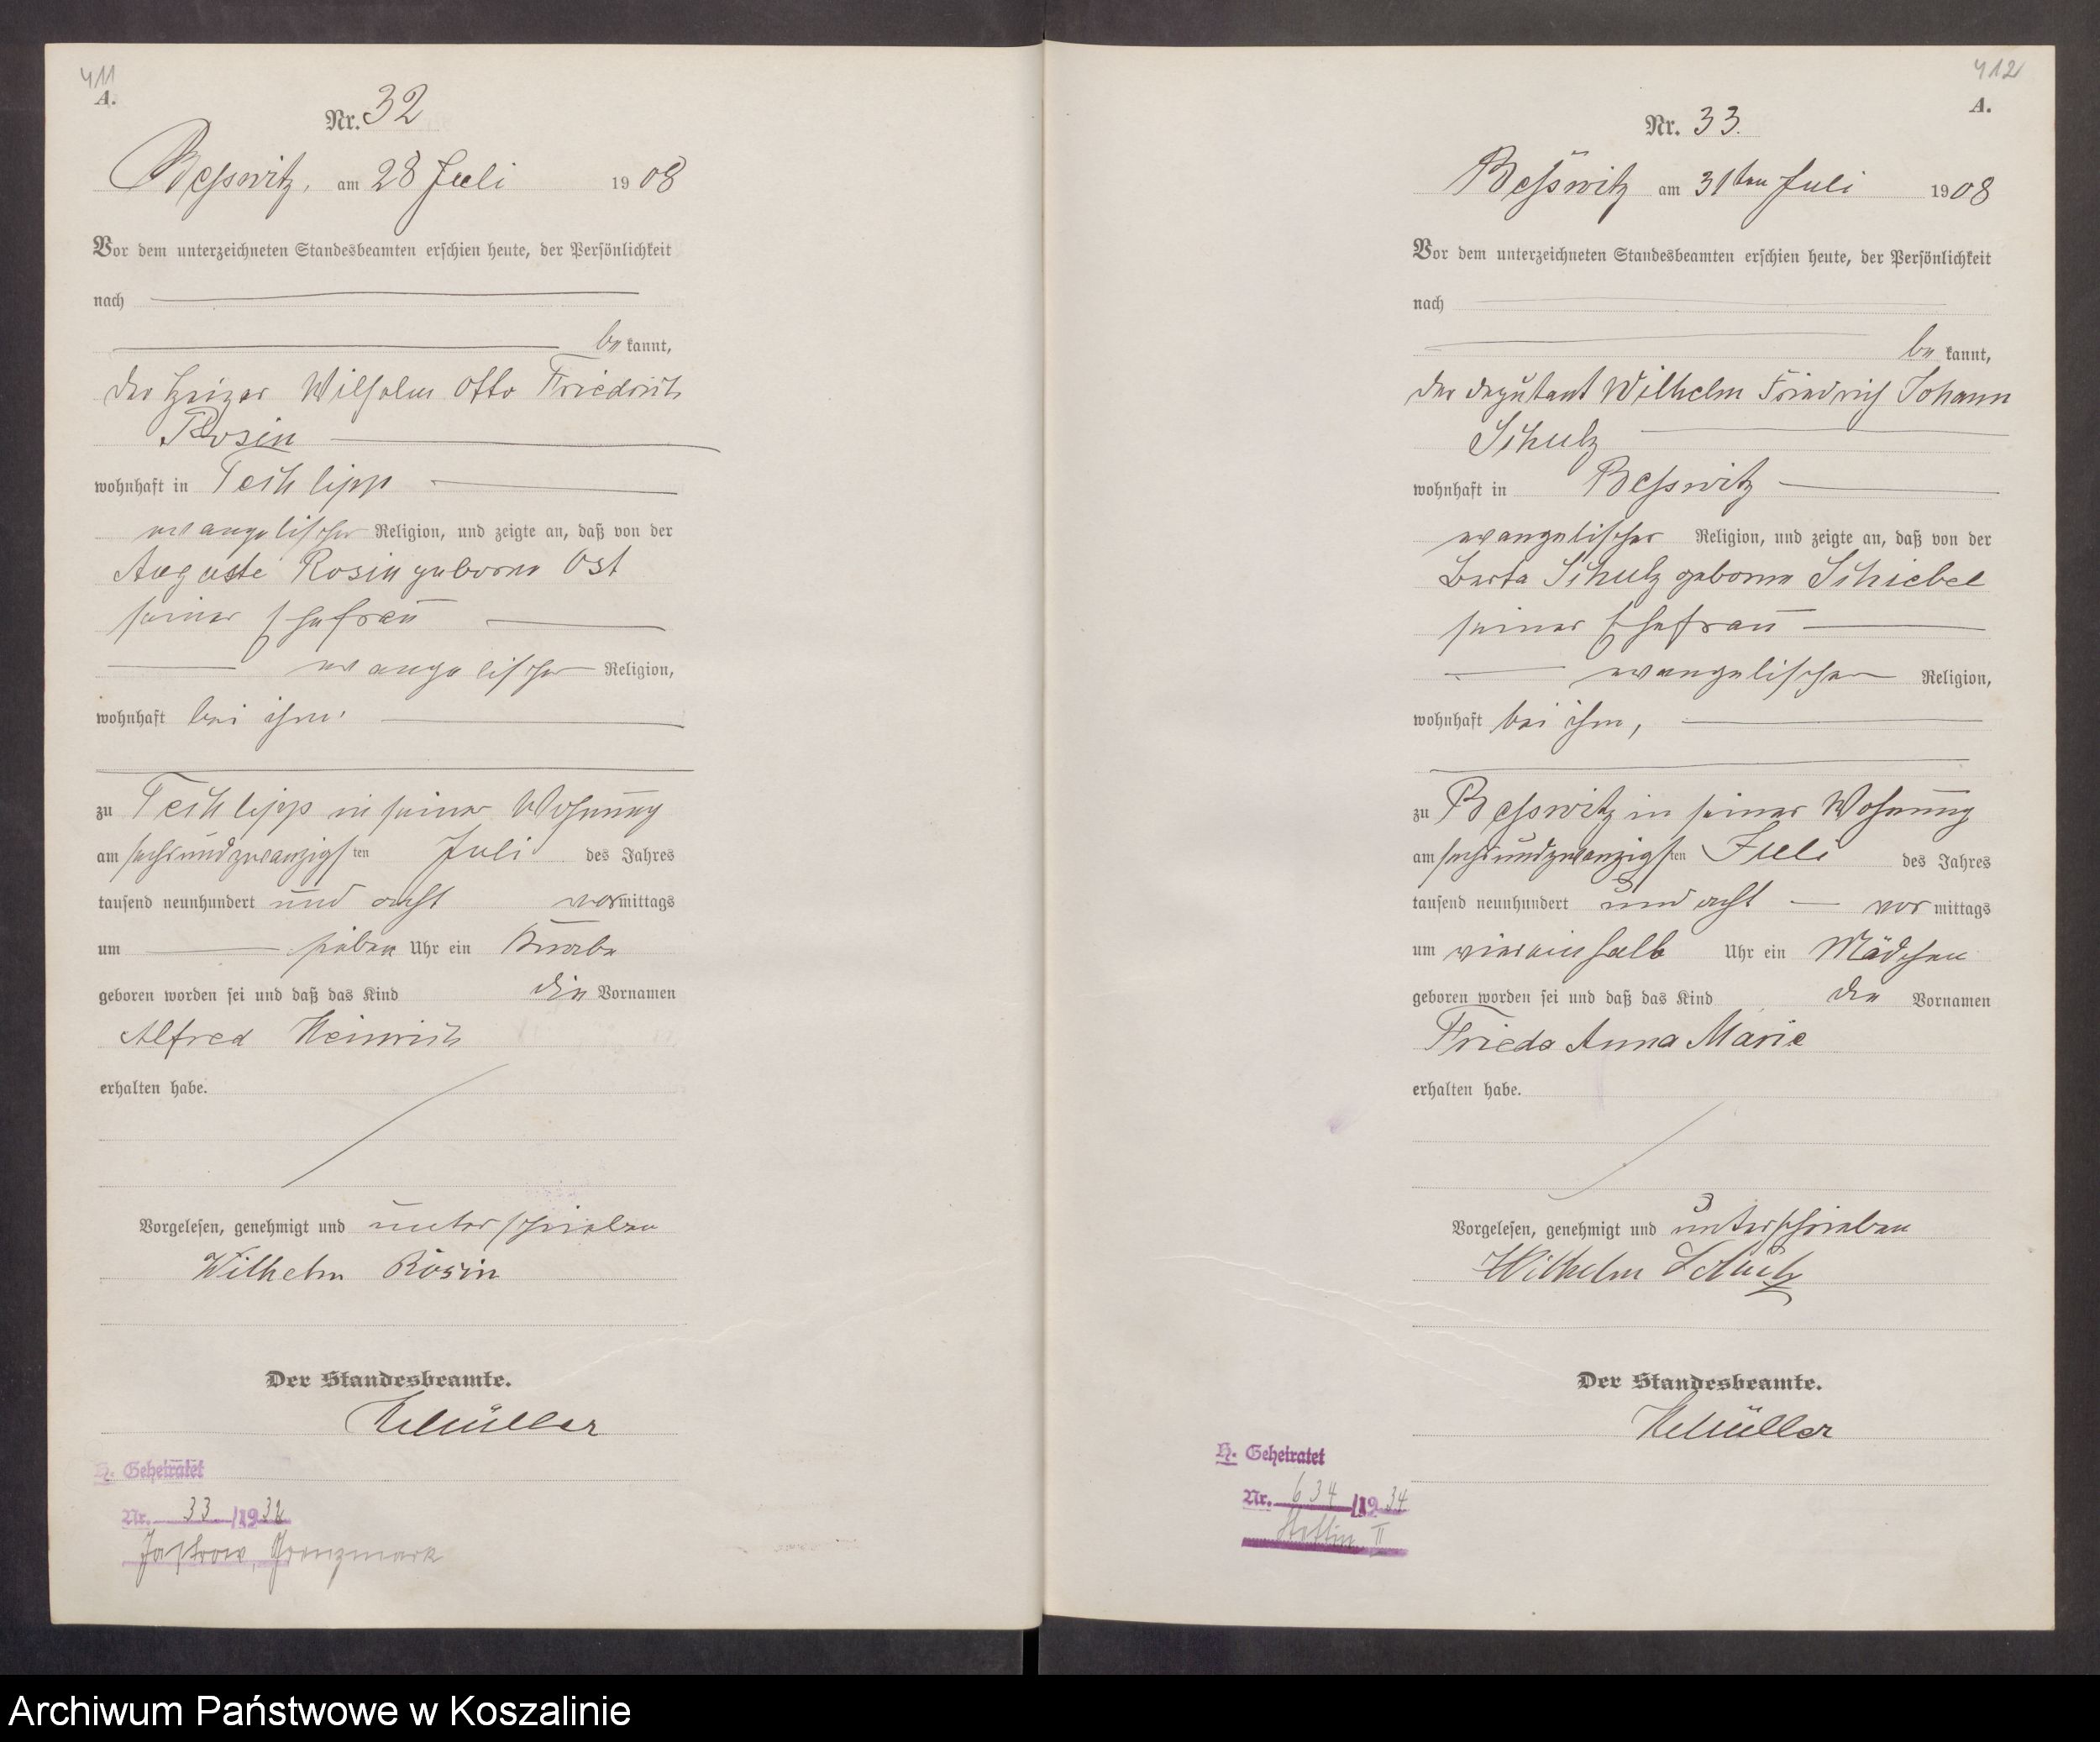 411
A.
Nr. 32
Beßwitz, am 28 Juli 1908
Vor dem unterzeichneten Standesbeamten erschien heute, der Persönlichkeit
nach
bekannt,
der Heizer Wilhelm Otto Friedrich
Rosin
wohnhaft in Techlipp
evangelischer Religion, und zeigte an, daß von der
Auguste Rosin geborne Ost
seiner Ehefrau
evangelischer Religion,
wohnhaft bei ihm,
zu Techlipp in seiner Wohnung
am sechsundzwanzigsten Juli des Jahres
tausend neunhundert und acht vormittags
um sieben Uhr ein Knabe
geboren worden sei und daß das Kind die Vornamen
Alfred Heinrich
erhalten habe.
Vorgelesen, genehmigt und unterschrieben
Wilhelm Rosin
Der Standesbeamte.
Müller
H. Geheiratet
Nr. 33/1932
Jastrow, Grenzmark
412
A.
Nr. 33.
Beßwitz am 31ten Juli 1908
Vor dem unterzeichneten Standesbeamten erschien heute, der Persönlichkeit
nach
bekannt,
der Deputant Wilhelm Friedrich Johann
Schulz
wohnhaft in Beßwitz
evangelischer Religion, und zeigte an, daß von der
Berta Schulz geborne Schiebel
seiner Ehefrau
evangelischer Religion,
wohnhaft bei ihm,
zu Beßwitz in seiner Wohnung
am sechsundzwanzigsten Juli des Jahres
tausend neunhundert und acht vormittags
um viereinhalb Uhr ein Mädchen
geboren worden sei und daß das Kind die Vornamen
Frieda Anna Marie
erhalten habe.
Vorgelesen, genehmigt und unterschrieben
Wilhelm Schulz
Der Standesbeamte.
Müller
H. Geheiratet
Nr. 634/1934
Stettin II
Archiwum Państwowe w Koszalinie